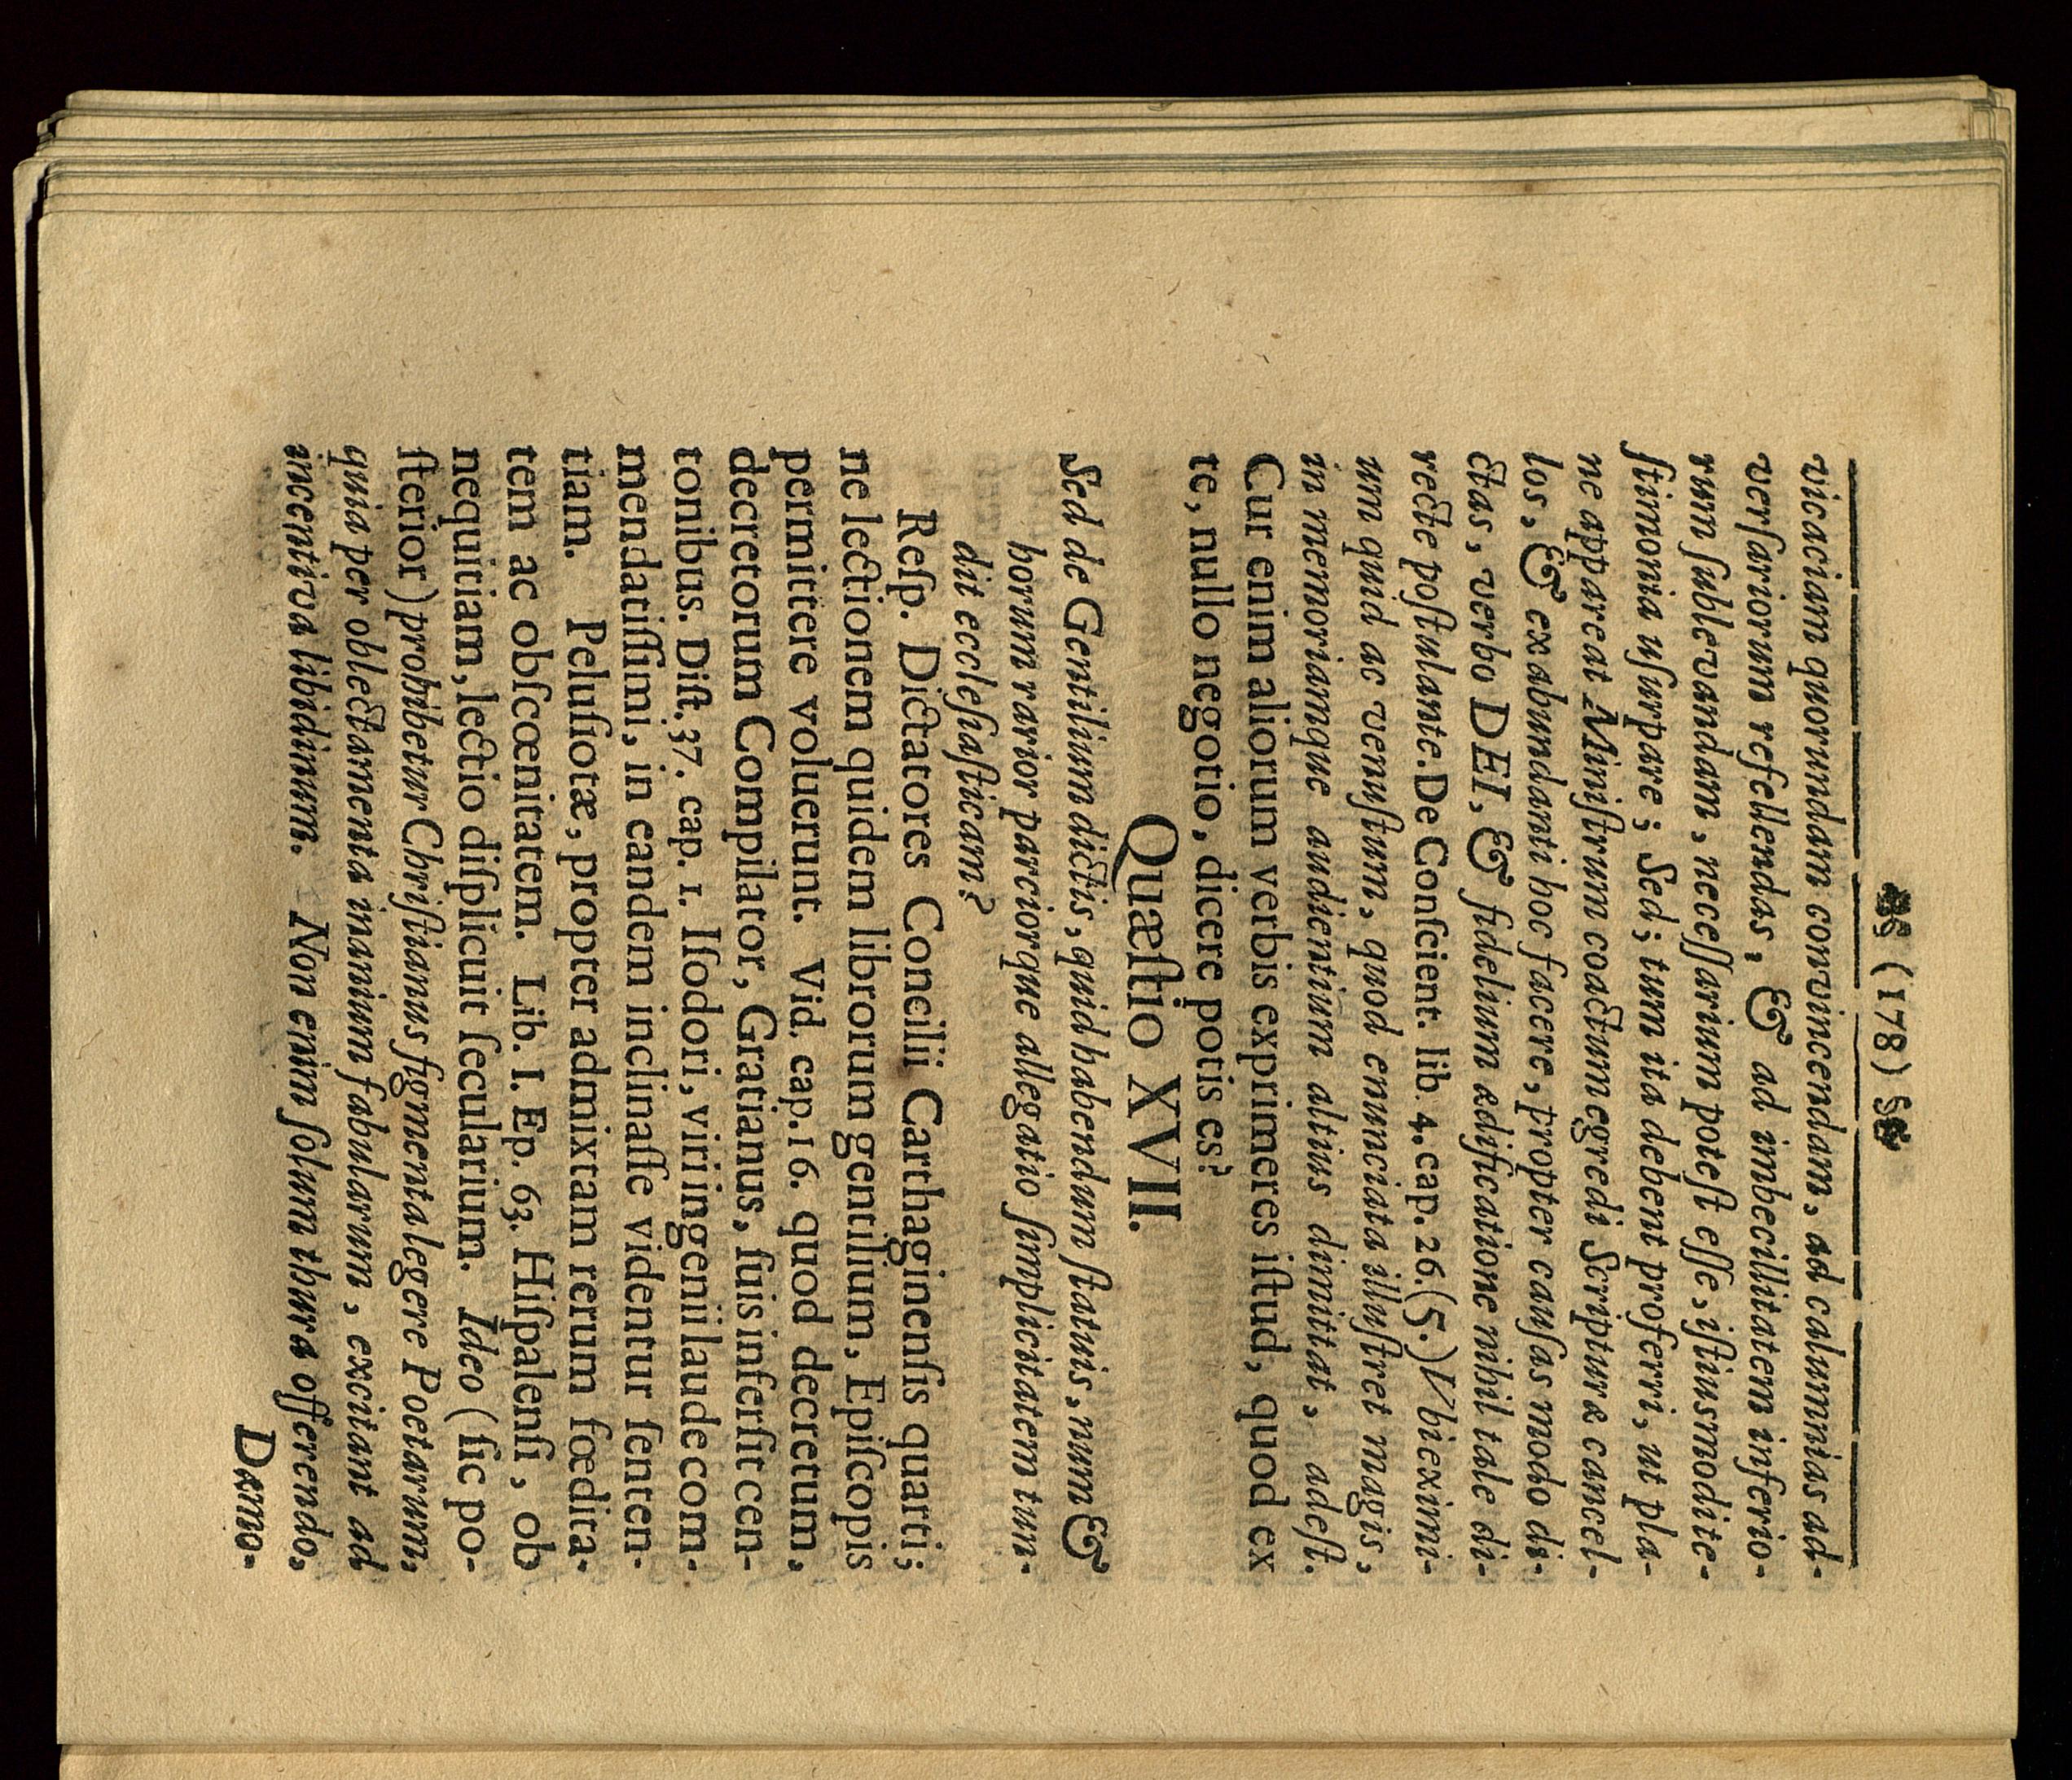 (178)
vicaciam quorundam convincendam, ad calumnias ad-
verſariorum refellendas, & ad imbecillitatem inferio-
rum ſublevandam, neceſſarium poteſt eſſe, iſtiusmodi te-
ſtimonia uſurpare; Sed; tum ita debent proferri, ut pla-
ne appareat Miniſtrum coactum egredi Scripturæ cancel-
los, & ex abundanti hoc facere, propter cauſas modo di-
ctas, verbo DEI, & fidelium ædificatione nihil tale di-
recte poſtulante. De Conſcient. lib. 4. cap. 26. (5.) Vbi eximi-
um quid ac venuſtum, quod enunciata illuſtret magis,
in memoriamque audientium altius dimittat, adeſt.
Cur enim aliorum verbis exprimeres iſtud, quod ex
te, nullo negotio, dicere potis es?
Quæſtio XVII.
Sed de Gentilium dictis, quid habendum ſtatuis, num &
horum rarior parciorque allegatio ſimplicitatem tun-
dit eccleſiaſticam?
Reſp. Dictatores Concilii Carthaginenſis quarti;
ne lectionem quidem librorum gentilium, Epiſcopis
permittere voluerunt. Vid. cap. 16. quod decretum,
decretorum Compilator, Gratianus, ſuis inferſit cen-
tonibus. Diſt. 37. cap. 1. Iſodori, viri ingenii laude com-
mendatiſſimi, in eandem inclinaſſe videntur ſenten-
tiam. Peluſiotæ, propter admixtam rerum fœdita-
tem ac obſcœnitatem. Lib. I. Ep. 63. Hiſpalenſi, ob
nequitiam, lectio diſplicuit ſecularium. Ideo (ſic po-
ſterior) prohibetur Chriſtianus figmenta legere Poetarum,
quia per oblectamenta inanium fabularum, excitant ad
incentiva libidinum. Non enim ſolum thura offerendo,
Dæmo-